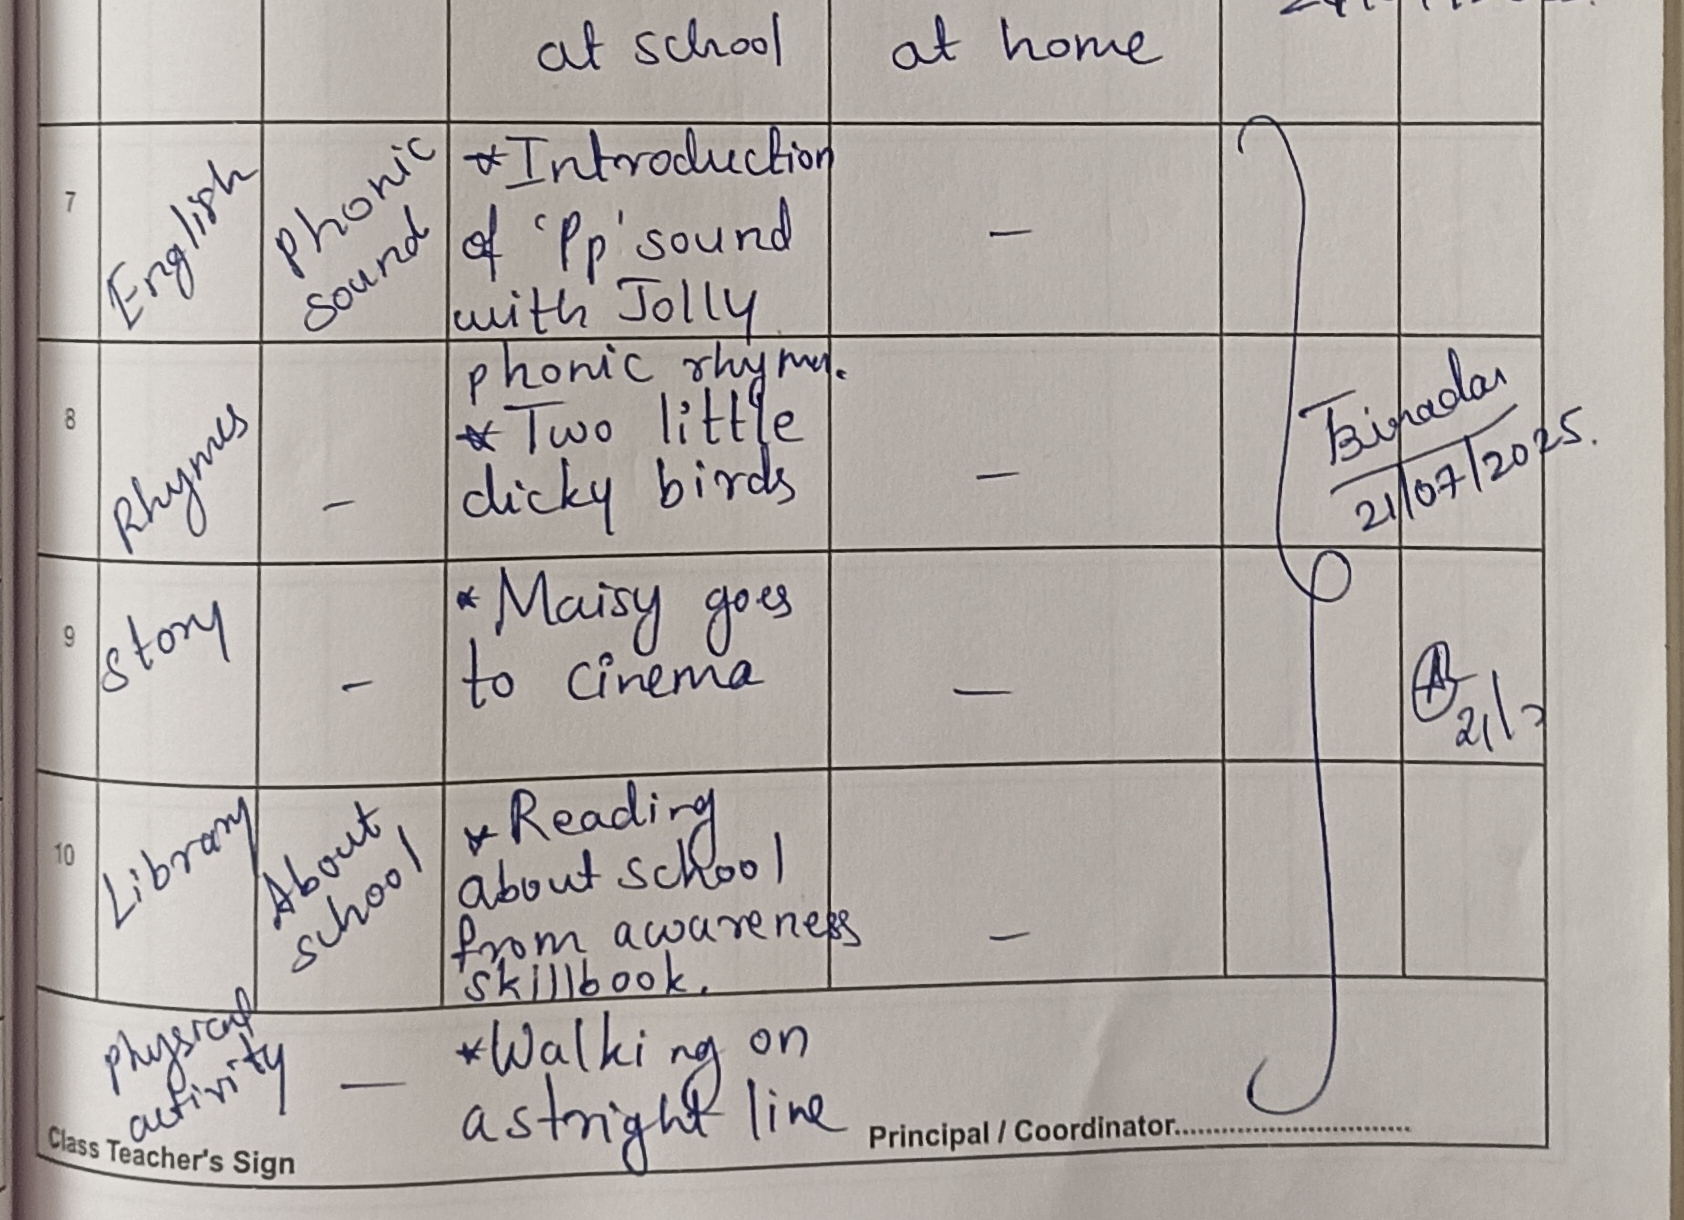 at school at home
7 English Phonic sound * Introduction
of 'Pp' sound —
with Jolly
phonic rhyme.
8 Rhymes — * Two little
dicky birds —
21/07/2025.
9 Story — * Maisy goes
to cinema —
21/7
10 Library About school * Reading
about school
from awareness —
skillbook.
Physical activity — * Walking on
a stright line
Class Teacher's Sign Principal / Coordinator..............................